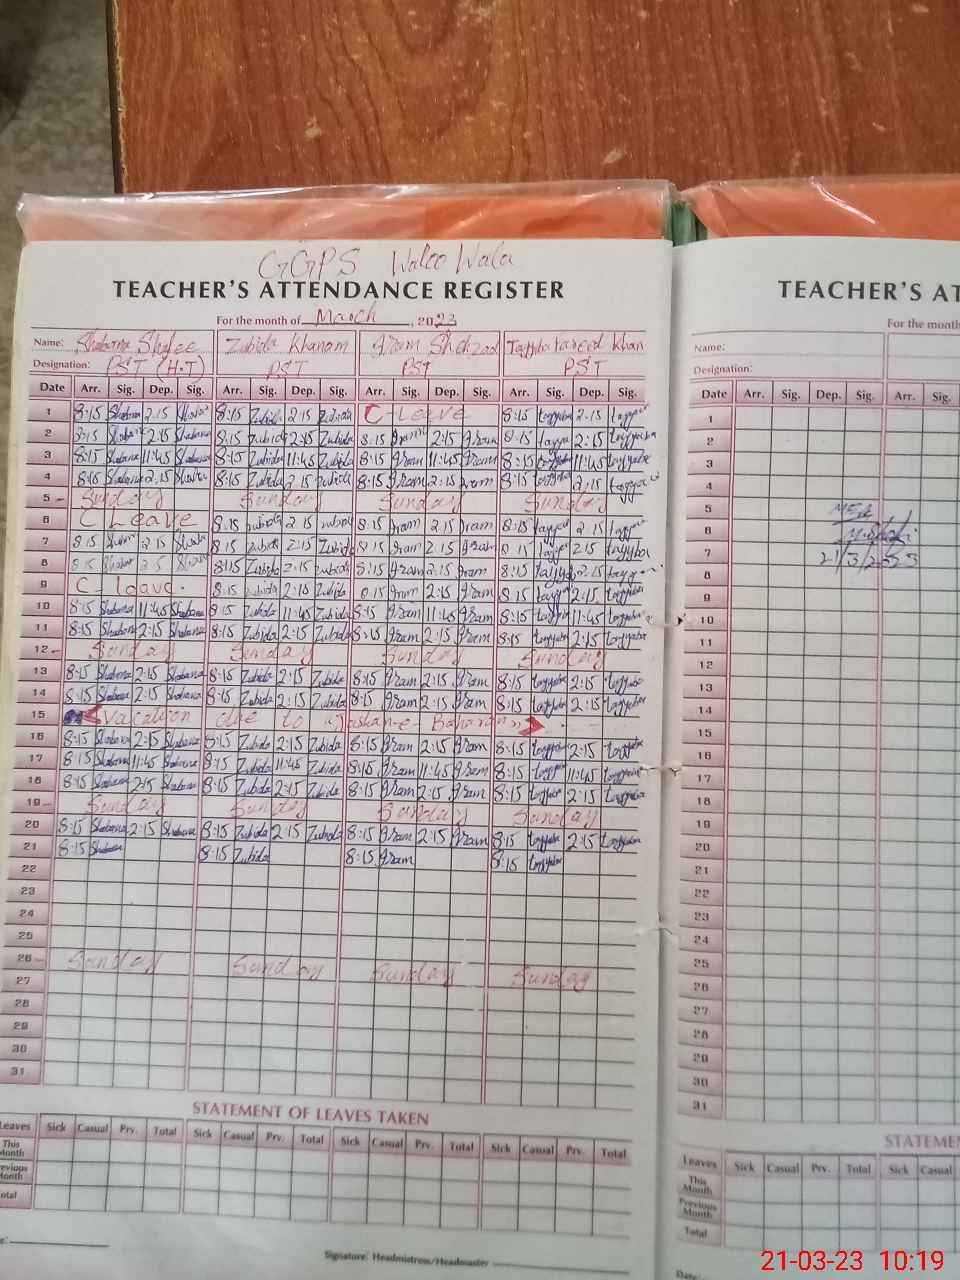 GGPS Waloo Wala
TEACHER'S ATTENDANCE REGISTER
For the month of March, 2023
Name: Shabana Shafee Zubida Khanam Iram Shehzad Tayyba fareed Khan
Designation: PST (H.T) PST PST PST
Date Arr. Sig. Dep. Sig. Arr. Sig. Dep. Sig. Arr. Sig. Dep. Sig. Arr. Sig. Dep. Sig.
1 8:15 Shabana 2:15 Shaba 8:15 Zubida 2:15 Zubida C-Leave 8:15 tayyba 2:15 tayyba
2 8:15 Shabana 2:15 Shabana 8:15 Zubida 2:15 Zubida 8:15 Iram 2:15 Iram 8:15 tayya 2:15 tayyaba
3 8:15 Shabana 11:45 Shabana 8:15 Zubida 11:45 Zubida 8:15 Iram 11:45 Iram 8:15 tayyba 11:45 tayyaba
4 8:15 Shabana 2:15 Shaba 8:15 Zubida 2:15 Zubida 8:15 Iram 2:15 Iram 8:15 tayyba 2:15 tayyba
5 Sunday Sunday Sunday Sunday
6 C Leave 8:15 Zubida 2:15 Zubida 8:15 Iram 2:15 Iram 8:15 tayya 2:15 tayya
7 8:15 Shaba 2:15 Shaba 8:15 Zubida 2:15 Zubida 8:15 Iram 2:15 Iram 8:15 tayya 2:15 tayyba
8 8:15 Shaba 2:15 Shaba 8:15 Zubida 2:15 Zubida 8:15 Iram 2:15 Iram 8:15 tayyba 2:15 tayya
9 C-leave. 8:15 Zubida 2:15 Zubida 8:15 Iram 2:15 Iram 8:15 tayyba 2:15 tayyba
10 8:15 Shabana 11:45 Shabana 8:15 Zubida 11:45 Zubida 8:15 Iram 11:45 Iram 8:15 tayyba 11:45 tayyaba
11 8:15 Shabana 2:15 Shabana 8:15 Zubida 2:15 Zubida 8:15 Iram 2:15 Iram 8:15 tayyba 2:15 tayyaba
12 Sunday Sunday Sunday Sunday
13 8:15 Shabana 2:15 Shabana 8:15 Zubida 2:15 Zubida 8:15 Iram 2:15 Iram 8:15 tayyba 2:15 tayyba
14 8:15 Shabana 2:15 Shabana 8:15 Zubida 2:15 Zubida 8:15 Iram 2:15 Iram 8:15 tayyba 2:15 tayyba
15 Vacation due to "Jashan-e-Baharan"
16 8:15 Shabana 2:15 Shabana 8:15 Zubida 2:15 Zubida 8:15 Iram 2:15 Iram 8:15 tayyba 2:15 tayyba
17 8:15 Shabana 11:45 Shabana 8:15 Zubida 11:45 Zubida 8:15 Iram 11:45 Iram 8:15 tayyba 11:45 tayyaba
18 8:15 Shabana 2:15 Shabana 8:15 Zubida 2:15 Zubida 8:15 Iram 2:15 Iram 8:15 tayyba 2:15 tayyba
19 Sunday Sunday Sunday Sunday
20 8:15 Shabana 2:15 Shabana 8:15 Zubida 2:15 Zubida 8:15 Iram 2:15 Iram 8:15 tayyba 2:15 tayyaba
21 8:15 Shabana 8:15 Zubida 8:15 Iram 8:15 tayyba
22
23
24
25
26 Sunday Sunday Sunday Sunday
27
28
29
30
31
STATEMENT OF LEAVES TAKEN
Leaves Sick Casual Prv. Total Sick Casual Prv. Total Sick Casual Prv. Total Sick Casual Prv. Total
This Month
Previous Month
Total
Signature: Headmistress/Headmaster
TEACHER'S AT
For the month
Name:
Designation:
Date Arr. Sig. Dep. Sig. Arr. Sig.
1
2
3
4
5
6
7 21/3/2023
8
9
10
11
12
13
14
15
16
17
18
19
20
21
22
23
24
25
26
27
28
29
30
31
STATEMEN
Leaves Sick Casual Prv. Total Sick Casual
This Month
Previous Month
Total
Date:
21-03-23 10:19